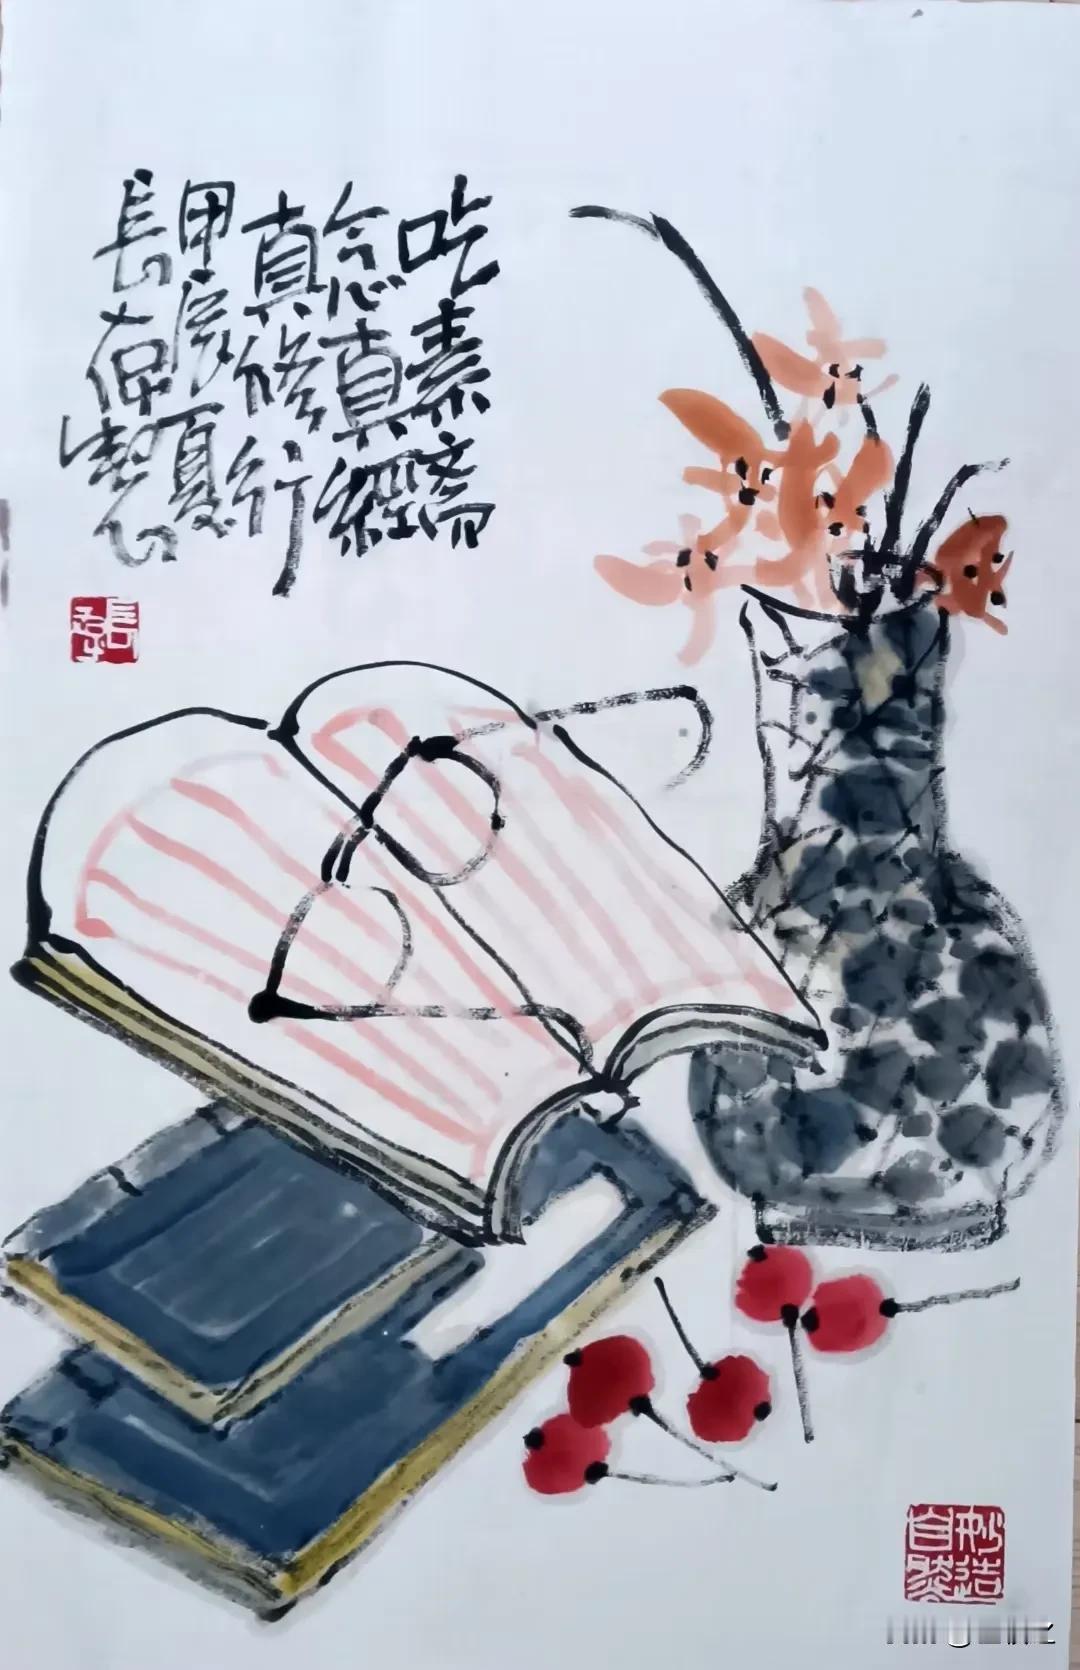 吃素齋
念真經
真修行
甲辰夏
長
妙造自然